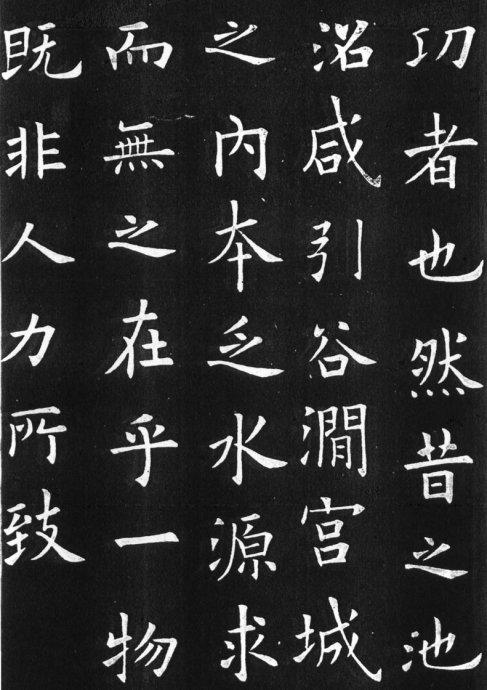 功者也然昔之池
沼咸引谷澗宮城
之內本乏水源求
而無之在乎一物
既非人力所致